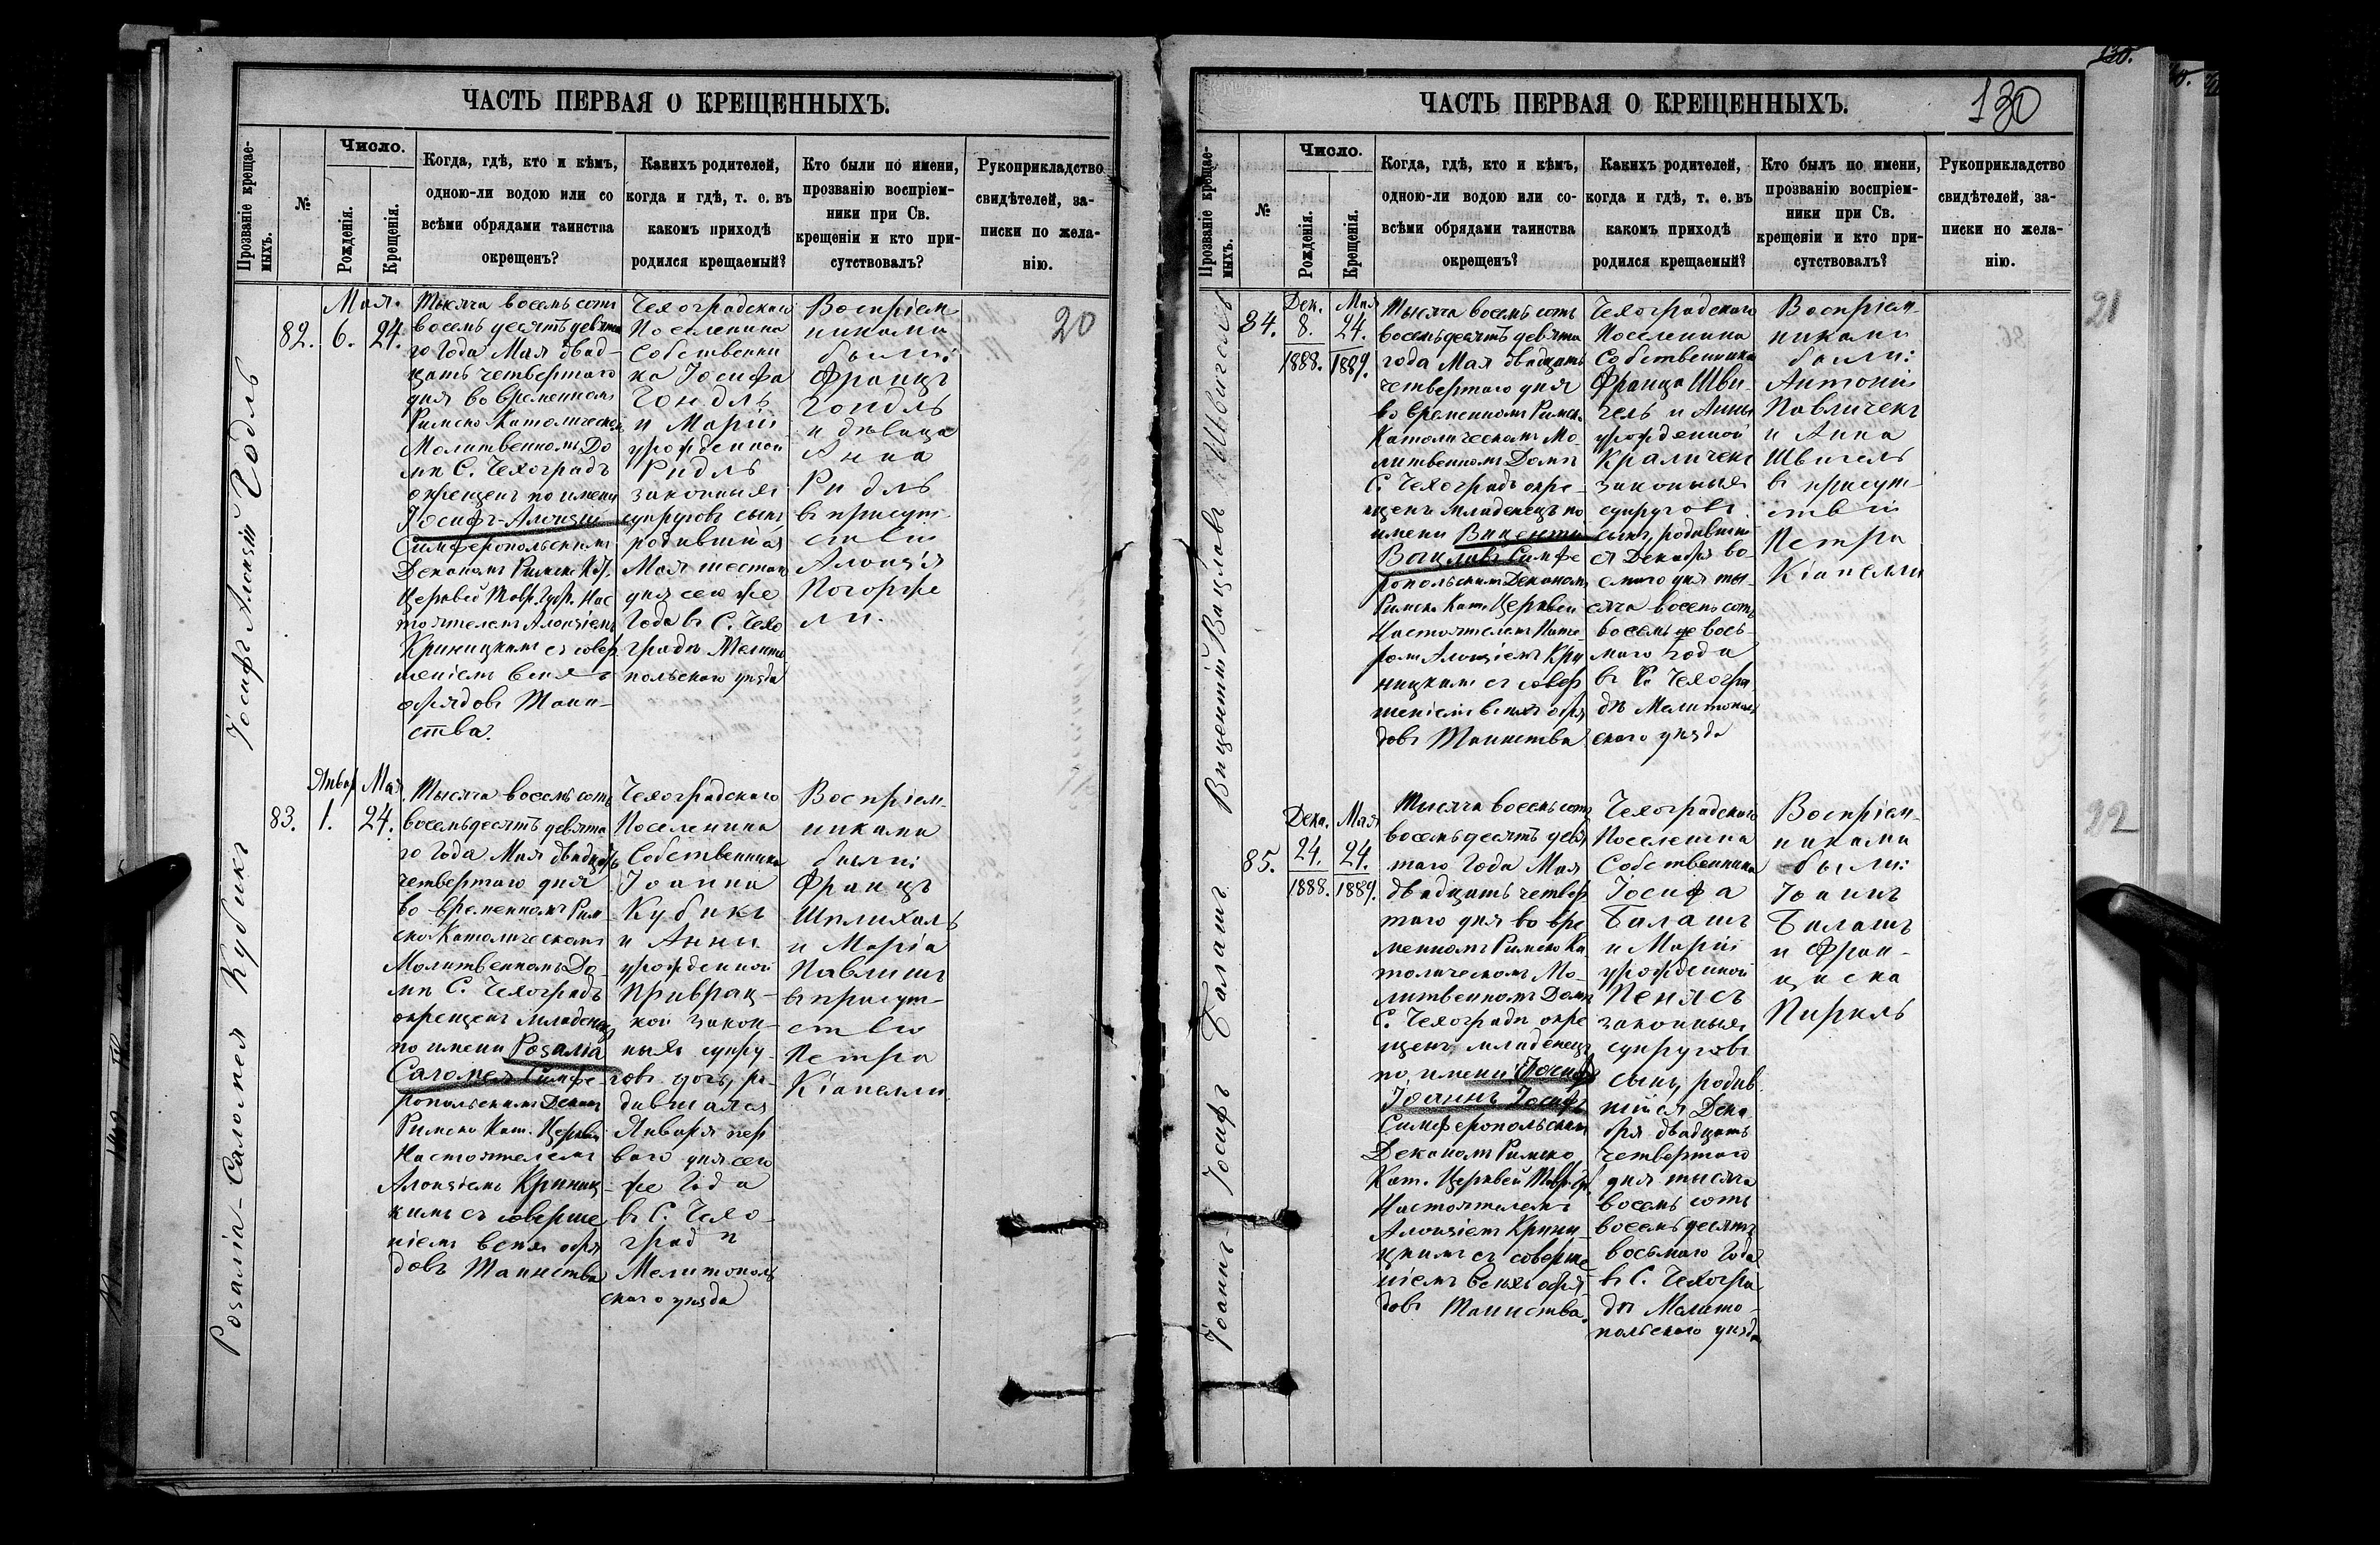 ЧАСТЬ ПЕРВАЯ О КРЕЩЕННЫХЪ.
Прозваніе крещае-
мыхъ.
№
Число.
Рожденія.
Крещенія.
Когда, гдѣ, кто и кѣмъ,
одною-ли водою или со
всѣми обрядами таинства
окрещенъ?
Какихъ родителей,
когда и гдѣ, т. е. въ
какомъ приходѣ
родился крещаемый?
Кто были по имени,
прозванію воспріем-
ники при Св.
крещеніи и кто при-
сутствовалъ?
Рукоприкладство
свидѣтелей, за-
писки по жела-
нію.
Іосифъ Алоизій
82.
Мая.
6.
24.
Тысяча восемь сотъ
восемь десятъ девята
го Года Мая двад-
цать четвертаго
дня во временномъ
Римско Католическом
Молитвенномъ До
мѣ С. Чехоградъ
окрещенъ по имени
Іосифъ-Алоизій
Симферопольскимъ
Деканомъ Римско К.
Церквей Тавр. Губ. Нас
тоятелемъ Алоизіемъ
Криницкимъ съ совер
шеніемъ всѣхъ
обрядовъ Таин-
ства.
Чехоградскаго
Поселенина
Собственни
ка Іосифа
Гондль
и Маріи
урожденной
Ридль
законныхъ
супруговъ сынъ
родившійся
Мая шестаго
дня сего же
Года въ С. Чехо
градѣ Мелито
польскаго уѣзда
Воспріем
никами
были:
Францъ
Гондль
и дѣвица
Анна
Ридль
въ присут-
ствіи
Алоизія
Погорже
ли.
20
Розалія-Саломея Кубикъ
83.
Январ
1.
Мая
24.
Тысяча восемь сотъ
восемьдесятъ девята
го Года Мая двадцать
четвертаго дня
во временномъ Рим
ско Католическомъ
Молитвенномъ До-
мѣ С. Чехоградъ
окрещенъ младенецъ
по имени Розалія
Саломея Симфе-
ропольскимъ Декан
Римско Кат. Церкви
Настоятелемъ
Алоизіемъ Криниц-
кимъ съ соверше
ніемъ всѣхъ обря
довъ Таинства
Чехоградскаго
Поселенина
Собственника
Іоанна
Кубикъ
и Анны
урожденной
Приврац-
кой закон-
ныхъ супру-
говъ дочь, ро-
дившаяся
Января пер
ваго дня сего
же Года
въ С. Чехо-
градѣ
Мелитополь
скаго уѣзда
Воспріем-
никами
были:
Францъ
Шплихаль
и Марія
Павлишъ
въ присут-
ствіи
Петра
Кіапелли
ЧАСТЬ ПЕРВАЯ О КРЕЩЕННЫХЪ.
130
Прозваніе крещае-
мыхъ.
№
Число.
Рожденія.
Крещенія.
Когда, гдѣ, кто и кѣмъ,
одною-ли водою или со-
всѣми обрядами таинства
окрещенъ?
Какихъ родителей,
когда и гдѣ, т. е. въ
какомъ приходѣ
родился крещаемый?
Кто былъ по имени,
прозванію воспріем-
ники при Св.
крещеніи и кто при-
сутствовалъ?
Рукоприкладство
свидѣтелей, за-
писки по жела-
нію.
Вицентій Вацлавъ Швигель
84.
Дек.
8.
1888.
Мая
24.
1889.
Тысяча восемь сотъ
восемьдесятъ девята
года Мая двадцать
четвертаго дня
во временномъ Римск.
Католическомъ Мо-
литвенномъ Домѣ
С. Чехоградъ окре-
щенъ младенецъ по
имени Вицентій
Вацлавъ Симфе
ропольскимъ Деканомъ
Римско Кат. Церквей
Настоятелемъ Пате-
ромъ Алоизіемъ Кри
ницкимъ съ совер
шеніемъ всѣхъ обря
довъ Таинства
Чехоградскаго
Поселенина
Собственника
Франца Шви-
гель и Анны
урожденной
Краличекъ
законныхъ
супруговъ
сынъ, родившій
ся Декабря во-
смаго дня ты-
сяча восемь сотъ
восемьде вось-
маго Года
въ С. Чехогра
дѣ Мелитополь
скаго уѣзда
Воспріем-
никами
были:
Антоній
Павличекъ
и Анна
Швигель
въ присут-
ствіи
Петра
Кіапелли
21
Іоаннъ-Іосифъ Балашъ
85.
Дека.
24.
1888.
Мая
24.
1889.
Тысяча восемь сотъ
восемьдесятъ девя
таго Года Мая
двадцать четвер
таго дня во вре
менномъ Римско Ка
толическомъ Мо-
литвенномъ Домѣ
С. Чехоградѣ окре
щенъ младенецъ
по имени Іосифъ
Іоаннъ Іосифъ
Симферопольскимъ
Деканомъ Римско
Кат. Церквей Тавр. Гу.
Настоятелемъ
Алоизіемъ Крини-
цкимъ съ соверше
ніемъ всѣхъ обря-
довъ Таинства.
Чехоградскаго
Поселенина
Собственника
Іосифа
Балашъ
и Маріи
урожденной
Пенясъ
законныхъ
супруговъ
сынъ, родив
шійся Дека
бря двадцать
четвертаго
дня тысяча
восемь сотъ
восемьдесятъ
восьмаго Года
въ С. Чехогра
дѣ Мелито-
польскаго уѣзда
Воспріем-
никами
были:
Іоаннъ
Балашъ
и Фран-
циска
Пиркль
22